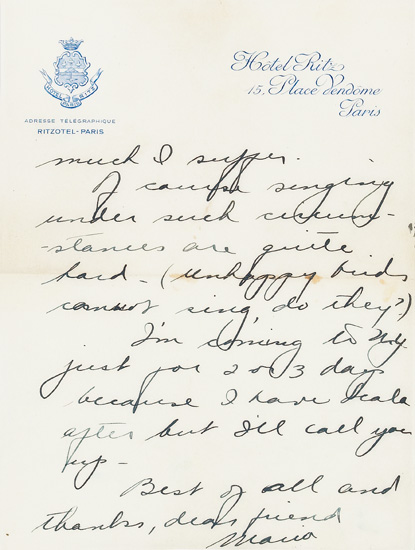 Hôtel Ritz
15, Place Vendôme
Paris
HOTEL RITZ
PARIS
ADRESSE TÉLÉGRAPHIQUE
RITZOTEL-PARIS
much I suffer.
Of course singing
under such circum-
-stances are quite
hard - (Unhappy birds
cannot sing, do they?)
I'm coming to N.Y.
just for 2 or 3 days
because I have Scala
after but I'll call you
up -
Best of all and
thanks, dear friend
Maria